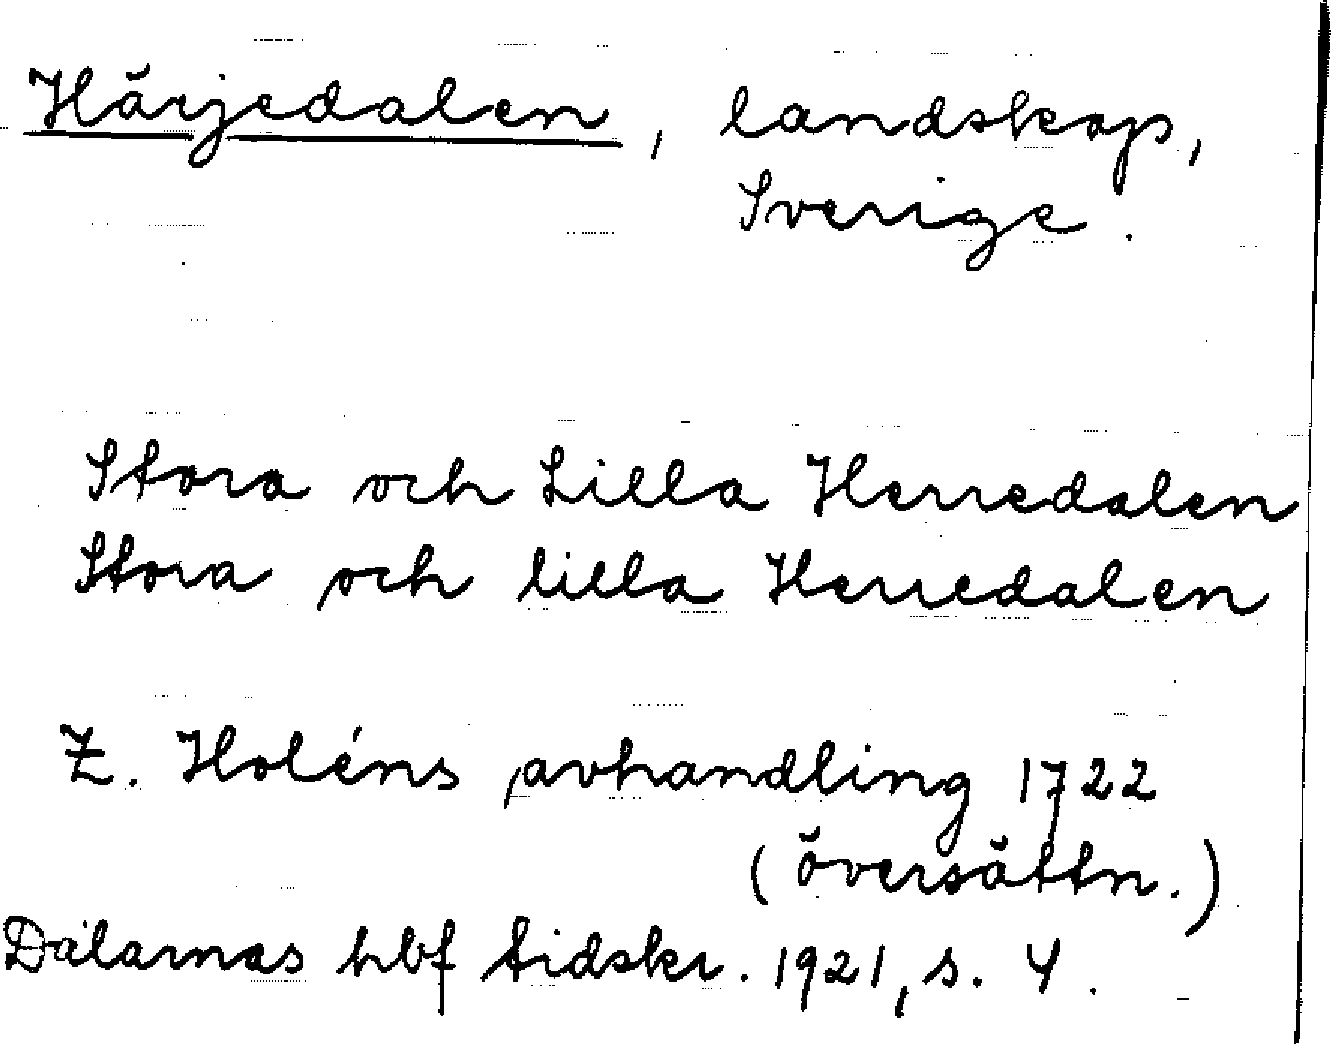 Härjedalen, landskap,
Sverige.
Stora och Lilla Herredalen
Stora och lilla Herredalen
Z. Holéns avhandling 1722
(översättn.)
Dalarnas hbf tidskr. 1921, s. 4.